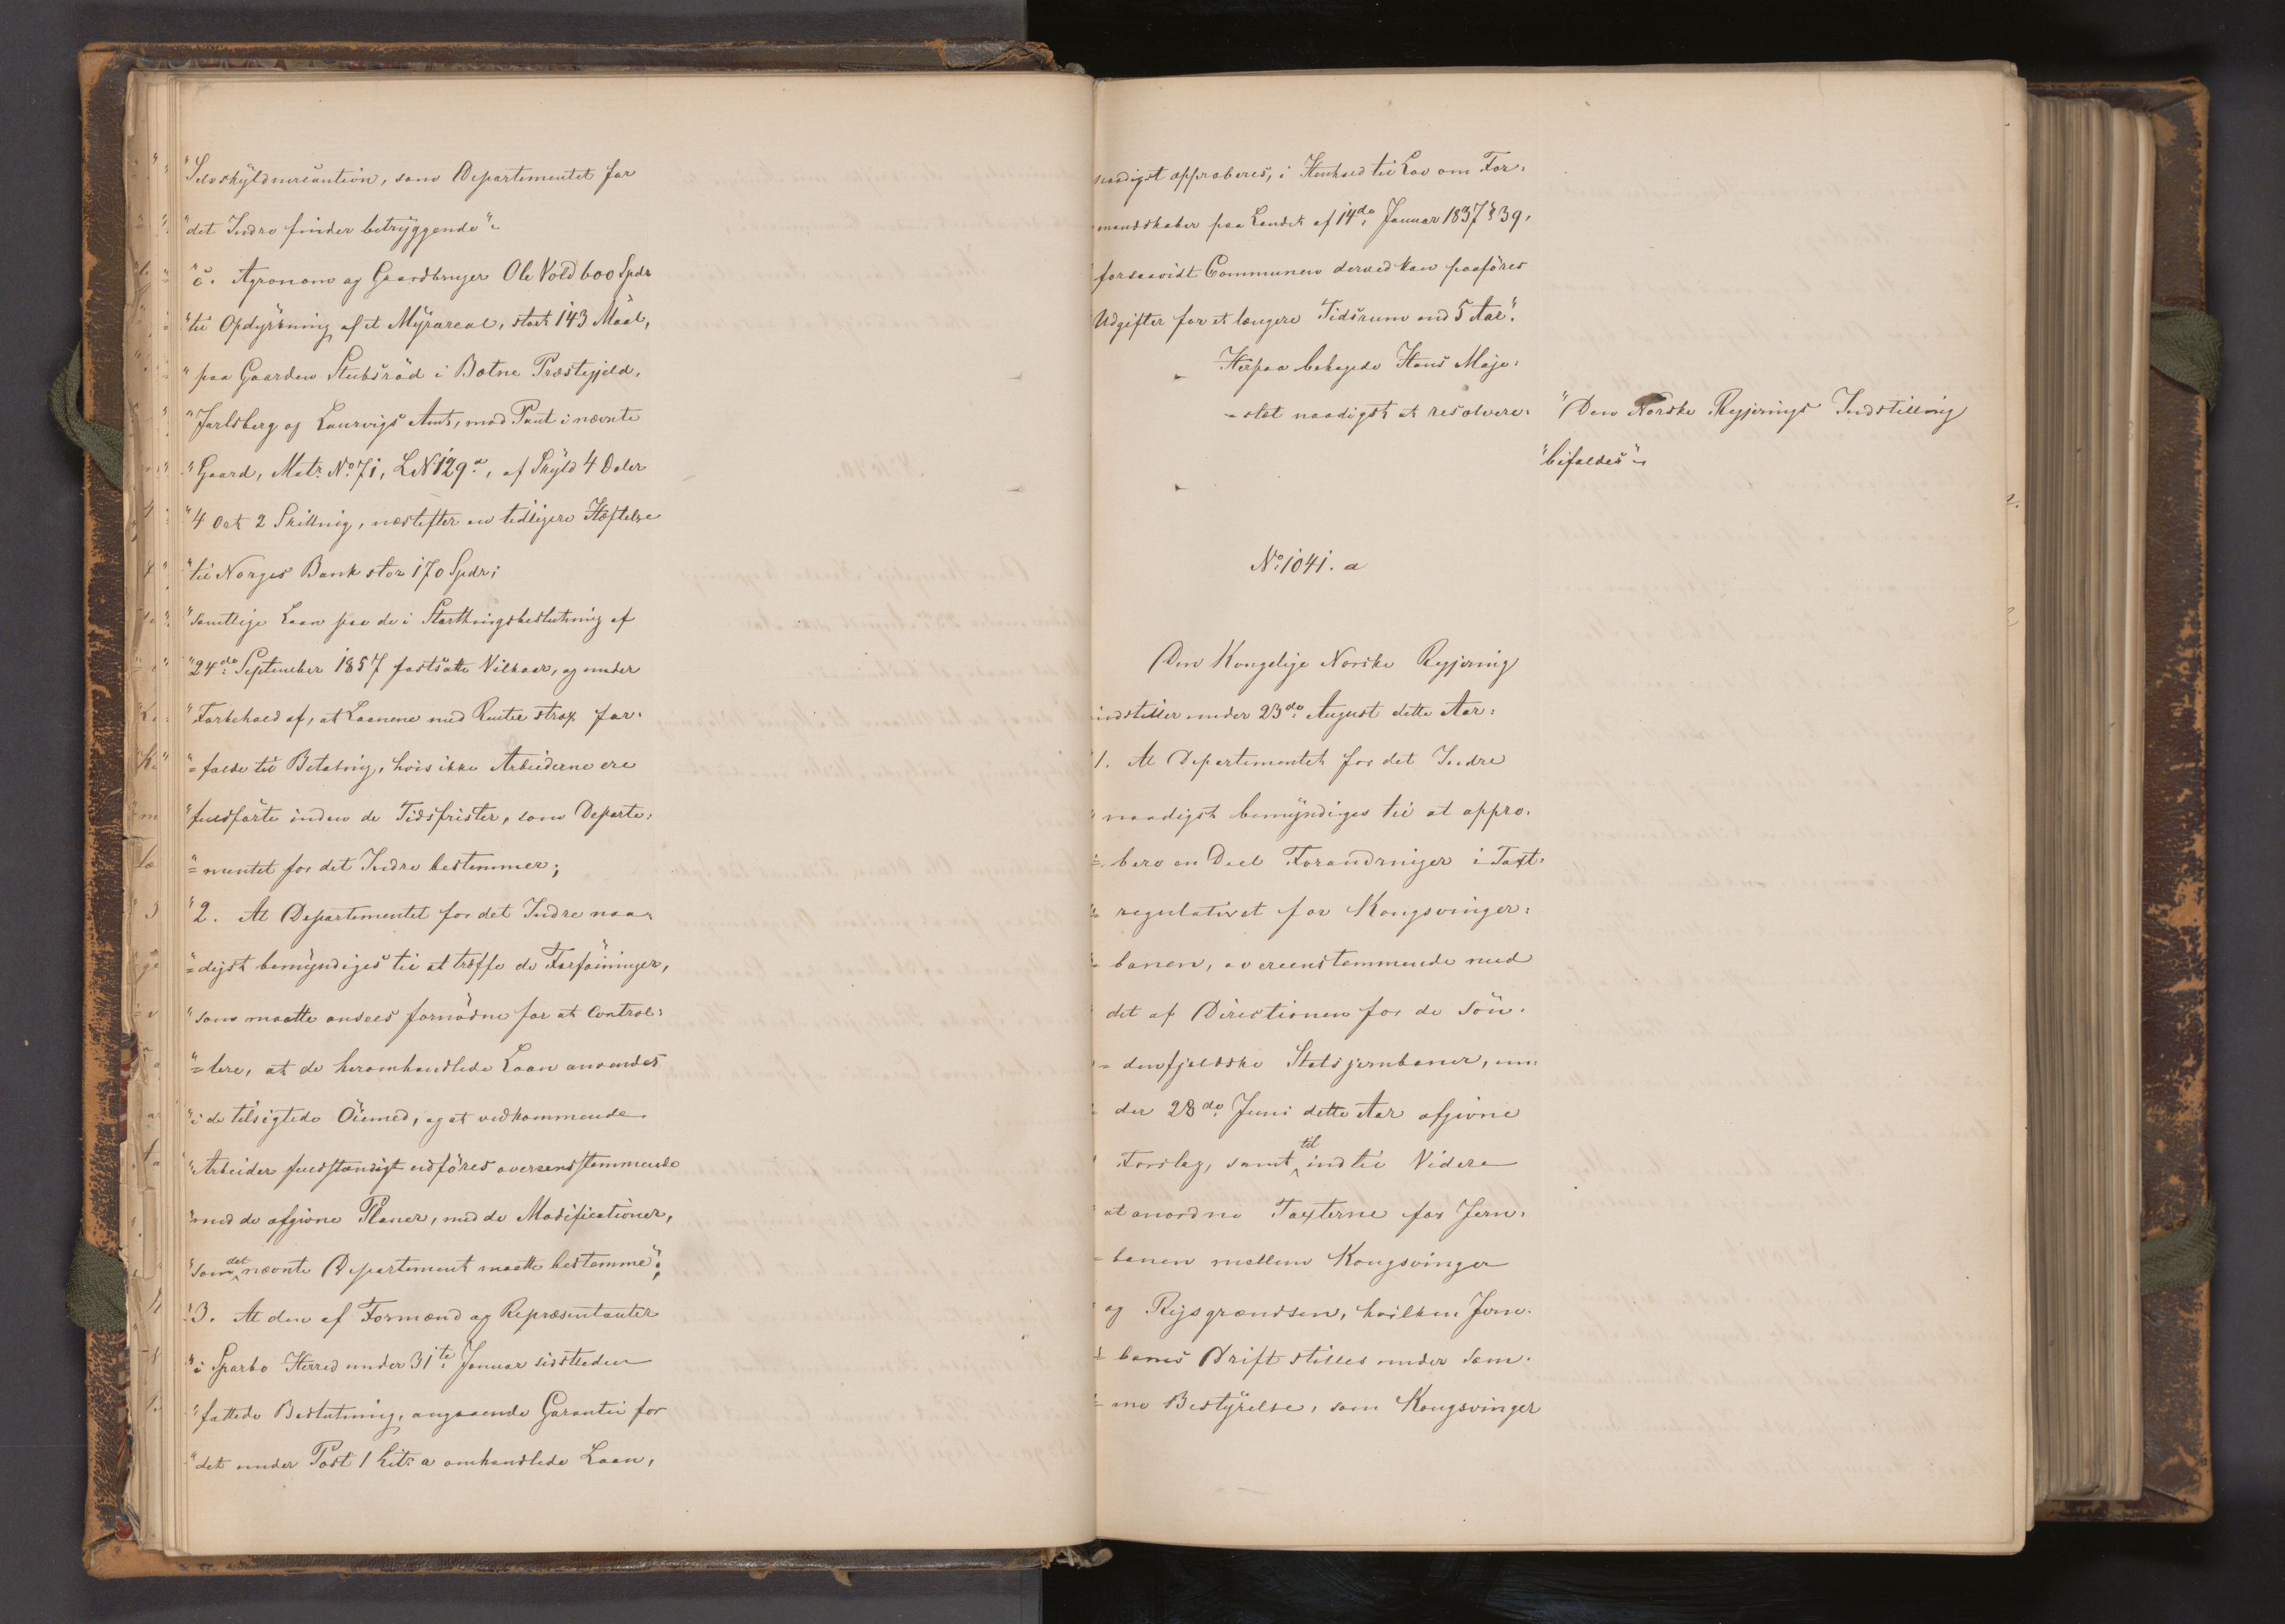 "Selvskyldnercaution, som Departementet for
"det Indre finder betryggende"
"c. Agronom og Gaardbruger Ole Vold 600 Spdr
"til Opdyrkning af et Myrareal, stort 143 Maal,
"paa Gaarden Stubsröd i Botne Præstegjeld,
"Jarlsberg og Laurvigs Amt, mod Pant i nævnte
"Gaard, Matr. No 71, LN 129a, af Skyld 4 Daler
"4 Ort 2 Skilling, næstefter en tidligere Hæftelse
"til Norges Bank stor 170 Spdr;
"samtlige Laan paa de i Storthingsbeslutning af
"24de September 1857 fastsatte Vilkaar, og under
"Forbehold af, at Laanene med Renter strax for=
"=falde til Betaling, hvis ikke Arbeiderne ere
"fuldförte inden de Tidsfrister, som Departe=
"=mentet for det Indre bestemmer;
"2. At Departementet for det Indre naa=
"=digst bemyndiges til at træffe de Forföininger,
"som maatte ansees fornödne for at control=
"=lere, at de heromhandlede Laan anvendes
"i de tilsigtede Öiemed, og at vedkommende
"Arbeider fuldstændigt udföres overensstemmende
"med de afgivne Planer, med de Modificationer,
"som det nævnte Departement maatte bestemme";
"3. At den af Formænd og Repræsentanter
"i Sparbo Herred under 31te Januar sidstleden
"fattede Beslutning, angaaende Garanti for
"det under Post 1 Litr. a omhandlede Laan,
naadigst approberes, i Henhold til Lov om For=
mandskaber paa Landet af 14de Januar 1837 § 39,
forsaavidt Communen derved kan paaföres
Udgifter for et længere Tidsrum end 5 Aar".
Herpaa behagede Hans Maje=
=stæt naadigst at resolvere: "Den Norske Regjerings Indstilling
"bifaldes"
No. 1041. a
Den Kongelige Norske Regjering
indstiller under 23de August dette Aar:
"1. At Departementet for det Indre
"naadigst bemyndiges til at appro=
"=bere en Deel Forandringer i Taxt=
"=regulativet for Kongsvinger=
"=banen, overeenstemmende med
"det af Directionen for de Sön=
"=denfjeldske Statsjernbaner, un=
"der 28de Juni dette Aar afgivne
"Forslag, samt til indtil Videre
"at anordne Taxterne for Jern=
"=banen mellem Kongsvinger
"og Rigsgrændsen, hvilken Jern=
"=banes Drift stilles under sam=
"=me Bestyrelse, som Kongsvinger